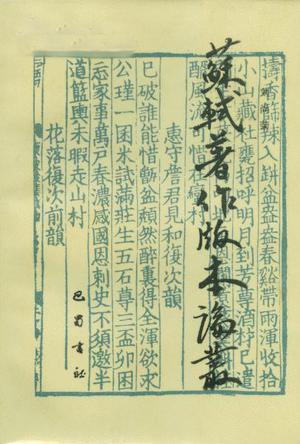 蘇軾著作版本論叢
巴蜀書社
擣香篩辣入缾盆盎盎春谿帶雨渾收拾
小山藏社甕招呼明月到芳尊酒材已遣
惠守詹君見和復次韻
已破誰能惜甑盆頹然醉裏得全渾欲求
公瑾一囷米試滿莊生五石尊三盃卯困
忘家事萬戶春濃感國恩刺史不須邀半
道籃輿未暇走山村
花落復次前韻